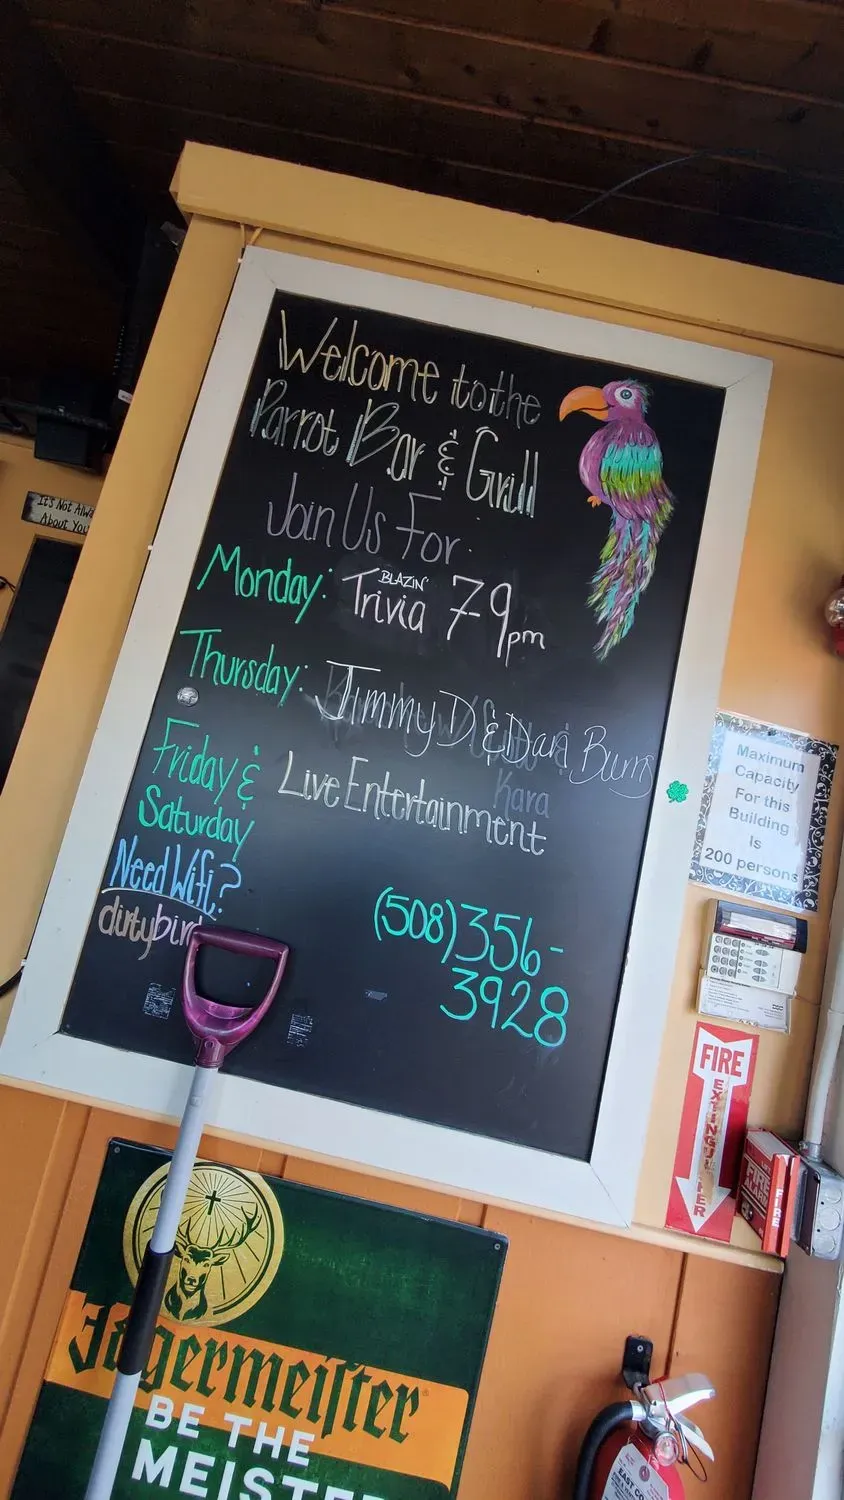 Welcome to the
Parrot Bar & Grill
Join Us For
Monday: BLAZIN' Trivia 7-9pm
Thursday: Jimmy D & Dan Burns
Kara
Friday &
Saturday
Live Entertainment
Need Wifi?
dirtybird
(508)356-
3928
It's Not Alwa
About You
Maximum
Capacity
For this
Building
Is
200 persons
FIRE
EXTINGUISHER
FIRE
FIRE
Jägermeister
BE THE
MEISTE
EAST CO